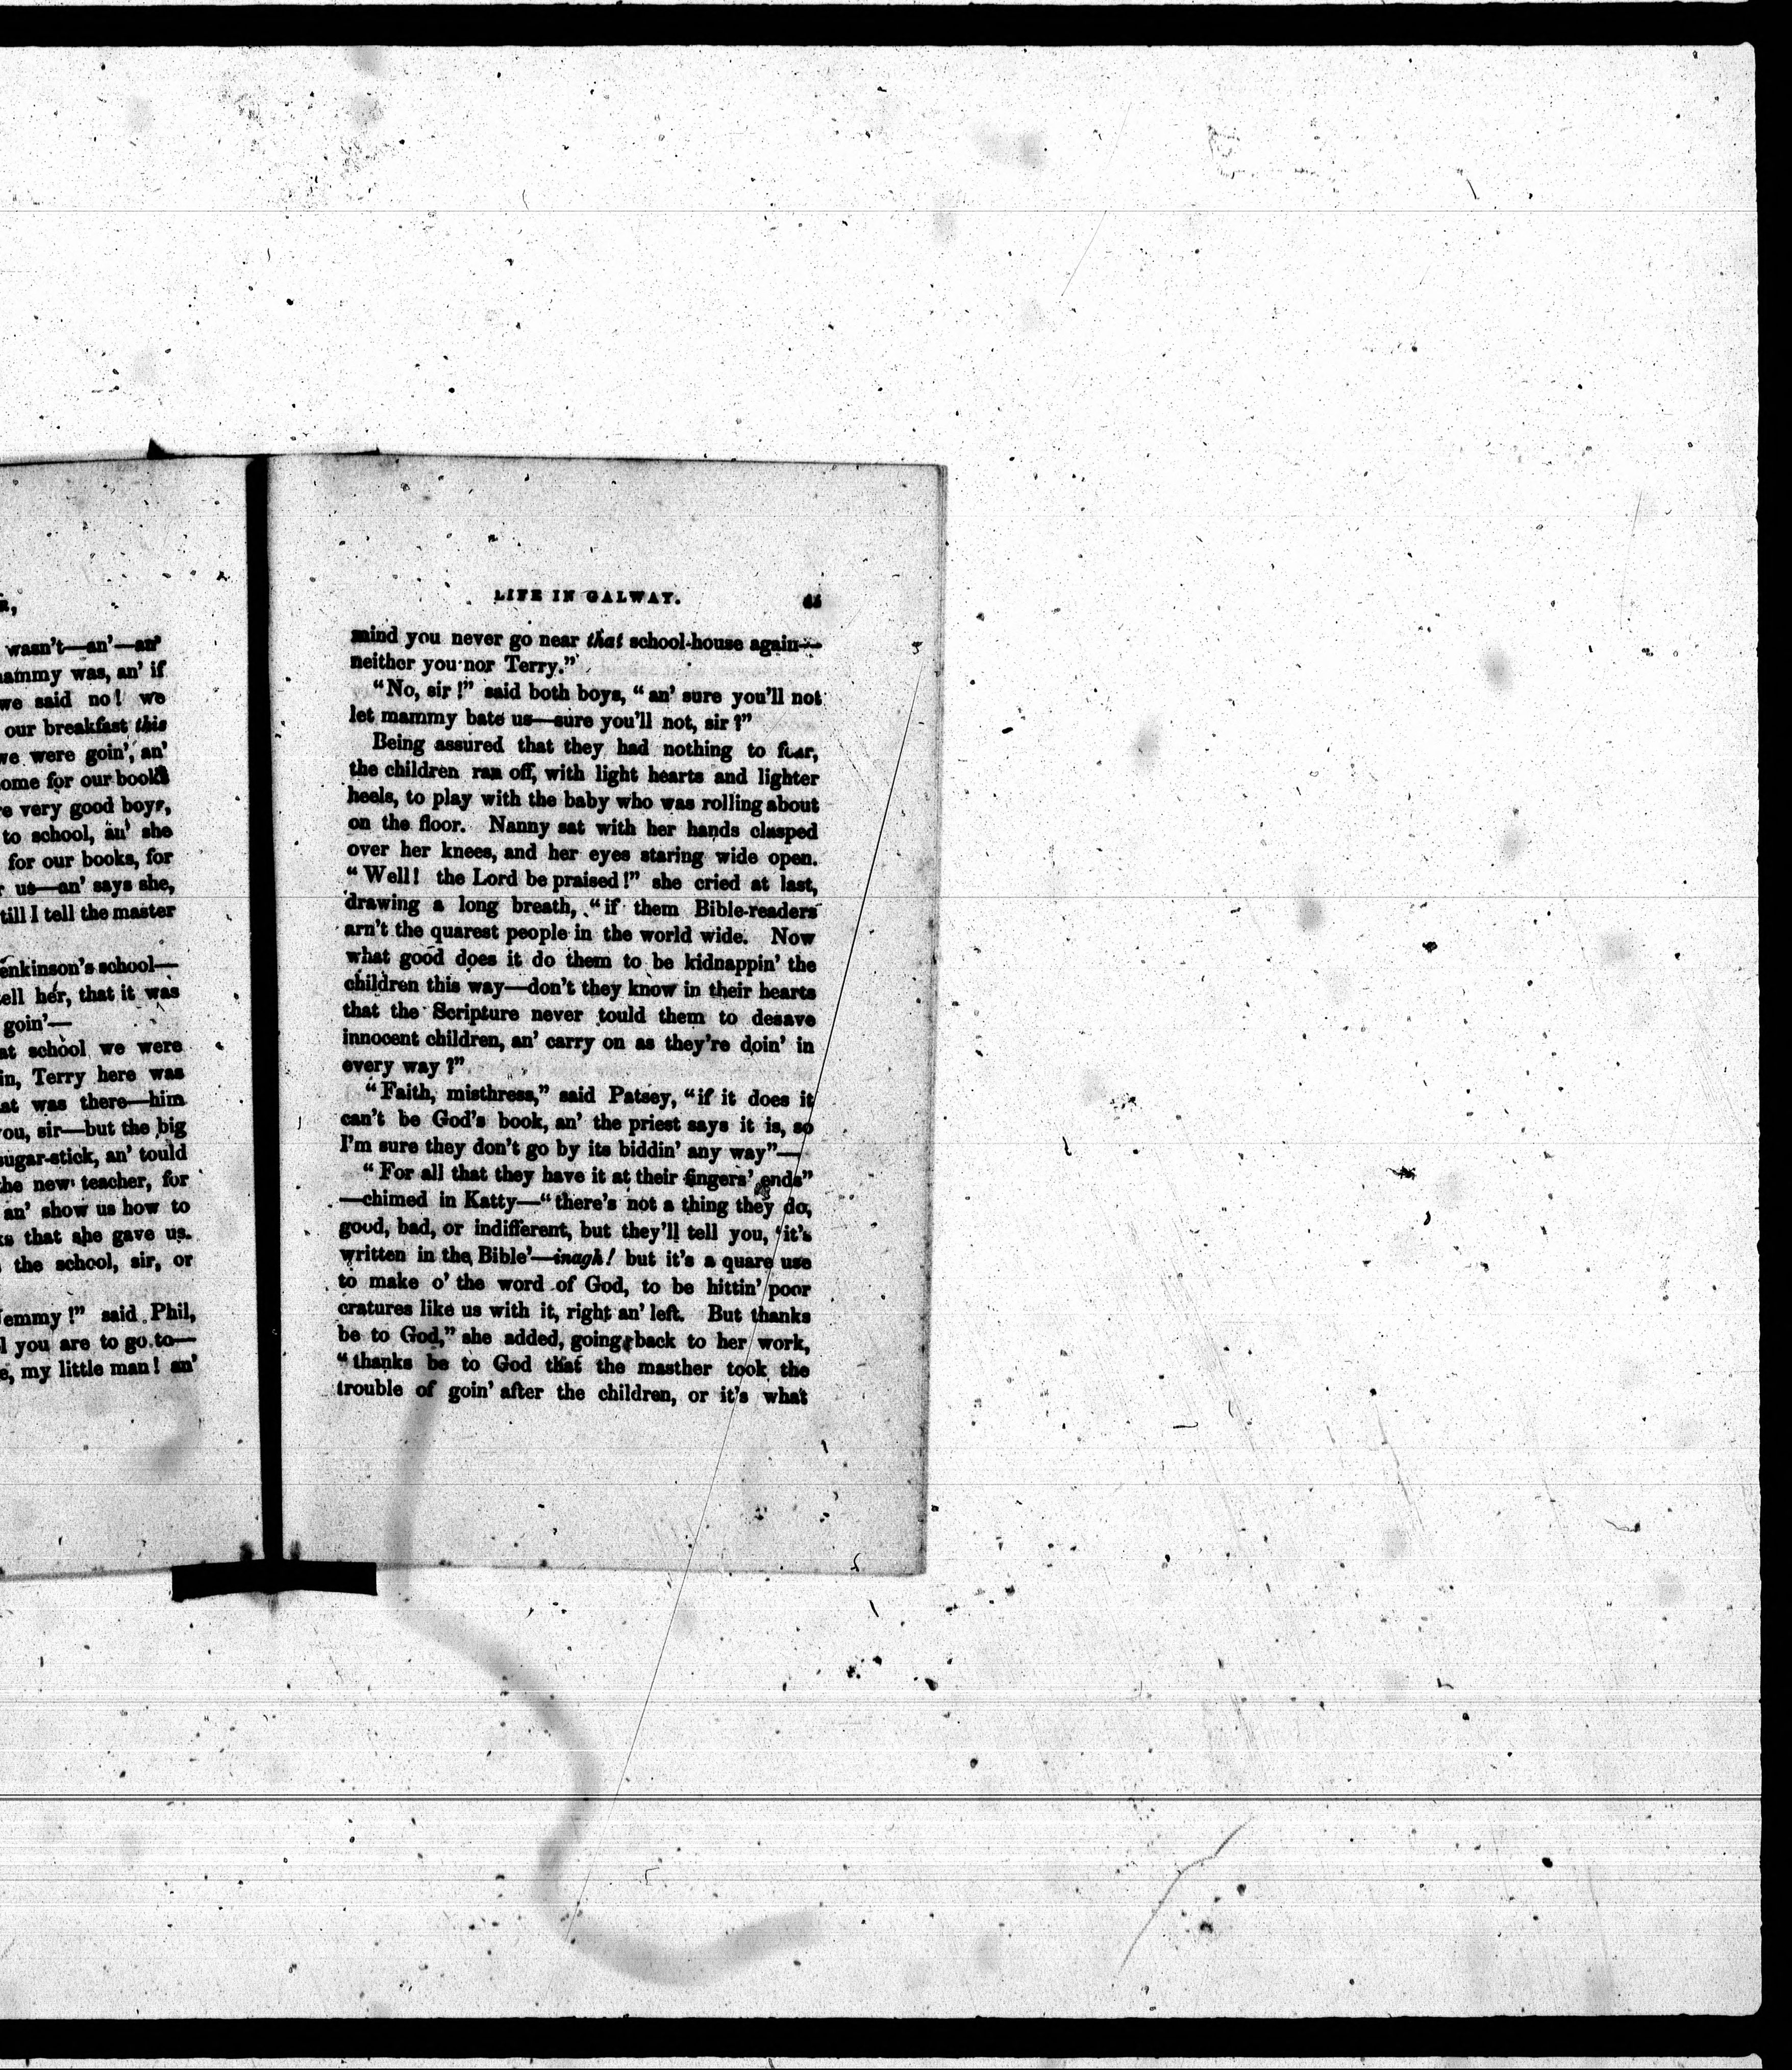 wasn't—an'—an'
mammy was, an' if
we said no! we
our breakfast this
we were goin', an'
ome for our books
very good boys,
to school, an' she
for our books, for
us—an' says she,
till I tell the master
enkinson's school—
tell her, that it was
goin'—
at school we were
in, Terry here was
at was there—him
you, sir—but the big
sugar-stick, an' tould
the new teacher, for
an' show us how to
that she gave us.
the school, sir, or
Jemmy!" said Phil,
you are to go to—
my little man! an'
LIFE IN GALWAY.
mind you never go near that school-house again—
neither you nor Terry."
"No, sir!" said both boys, "an' sure you'll not
let mammy bate us—sure you'll not, sir?"
Being assured that they had nothing to fear,
the children ran off, with light hearts and lighter
heels, to play with the baby who was rolling about
on the floor. Nanny sat with her hands clasped
over her knees, and her eyes staring wide open.
"Well! the Lord be praised!" she cried at last,
drawing a long breath, "if them Bible-readers
arn't the quarest people in the world wide. Now
what good does it do them to be kidnappin' the
children this way—don't they know in their hearts
that the Scripture never tould them to desave
innocent children, an' carry on as they're doin' in
every way?"
"Faith, misthress," said Patsey, "if it does it
can't be God's book, an' the priest says it is, so
I'm sure they don't go by its biddin' any way"—
"For all that they have it at their fingers' ends"
—chimed in Katty—"there's not a thing they do,
good, bad, or indifferent, but they'll tell you, 'it's
written in the Bible'—inagh! but it's a quare use
to make o' the word of God, to be hittin' poor
cratures like us with it, right an' left. But thanks
be to God," she added, going back to her work,
"thanks be to God that the masther took the
trouble of goin' after the children, or it's what